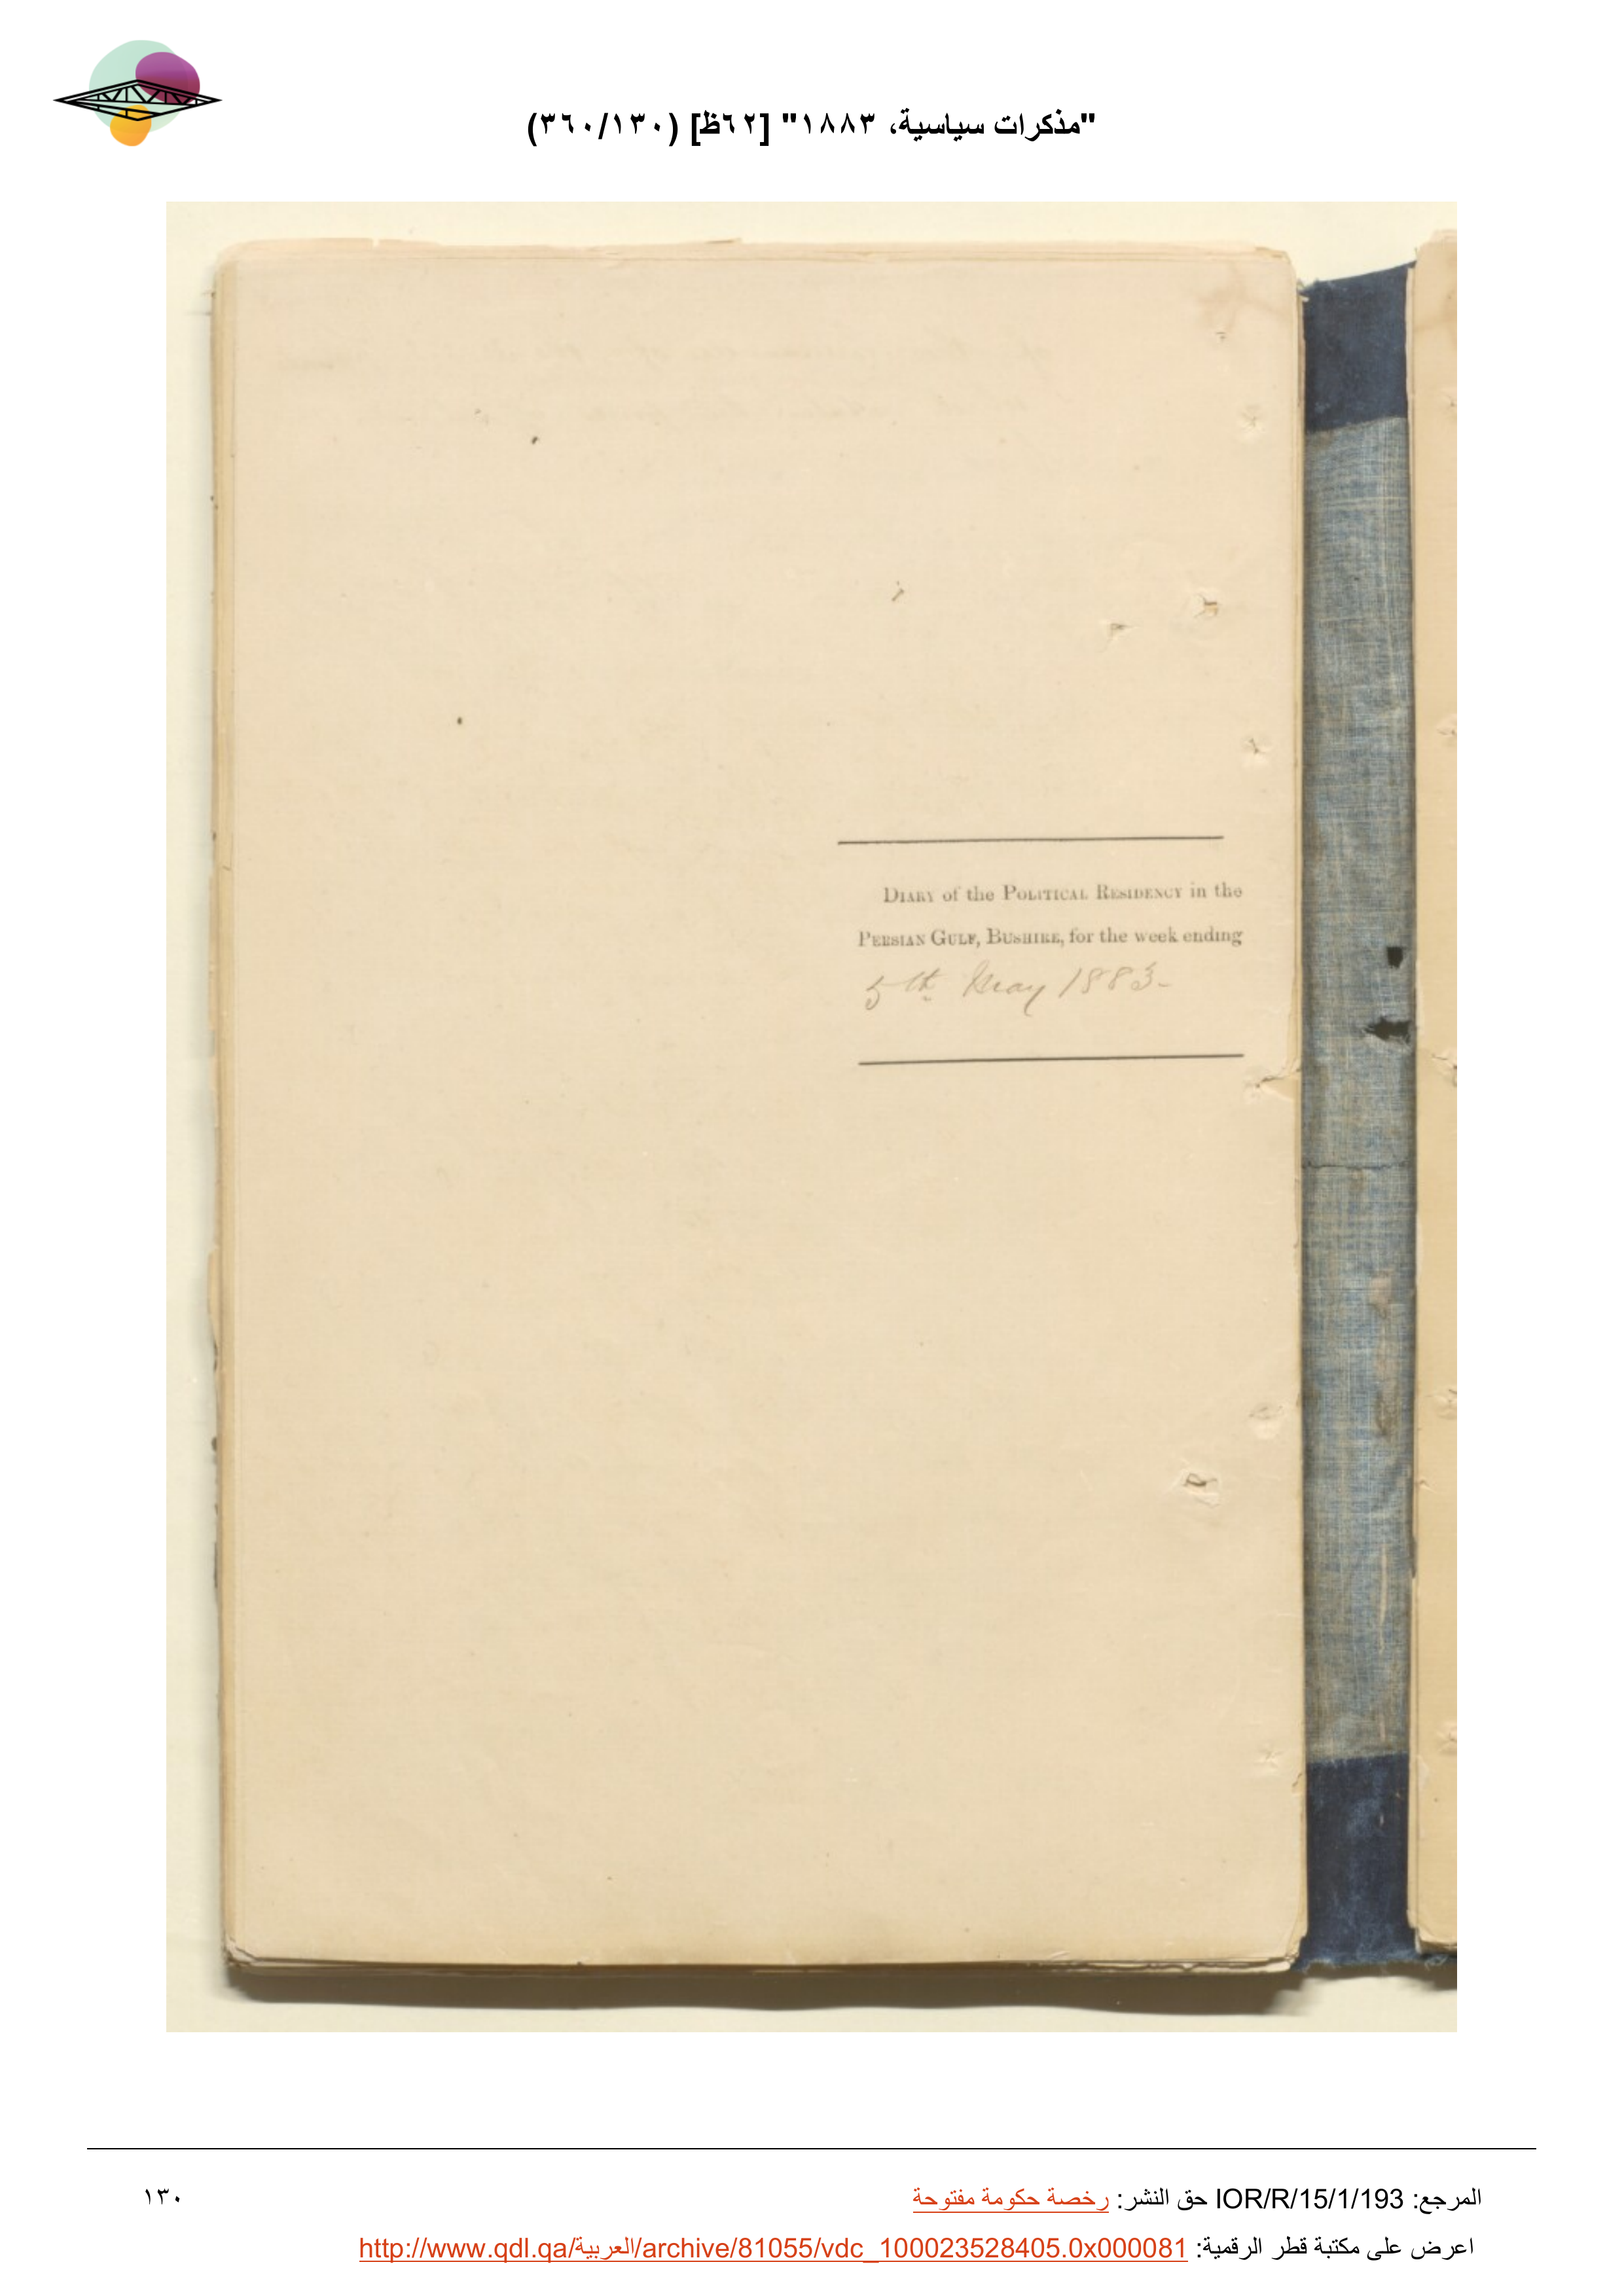 "مذكرات سياسية، ١٨٨٣" [٦٢ظ] (٣٦٠/١٣٠)
DIARY of the POLITICAL RESIDENCY in the
PERSIAN GULF, BUSHIRE, for the week ending
5th May 1883-
المرجع: IOR/R/15/1/193 حق النشر: رخصة حكومة مفتوحة
١٣٠
اعرض على مكتبة قطر الرقمية: http://www.qdl.qa/العربية/archive/81055/vdc_100023528405.0x000081